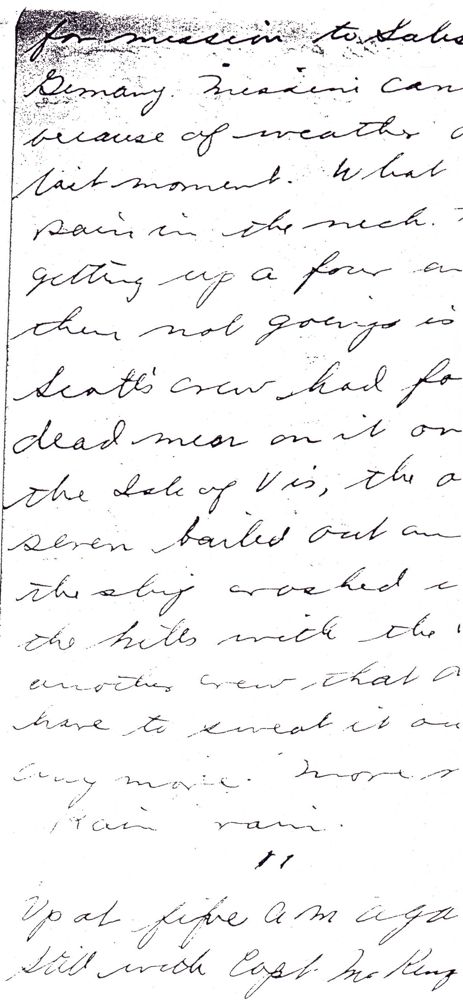 for mission to Sales
Germany. Mission can
because of weather
last moment. What
pain in the neck.
getting up a four an
then not going is
Scott's crew had fo
dead men on it on
the Isle of Vis, the o
seven bailed out an
the ship crashed i
the hills with the
another crew that
have to sweat it ou
any more. More r
Rain rain.
11
Up at five am aga
Still with Capt. McKing